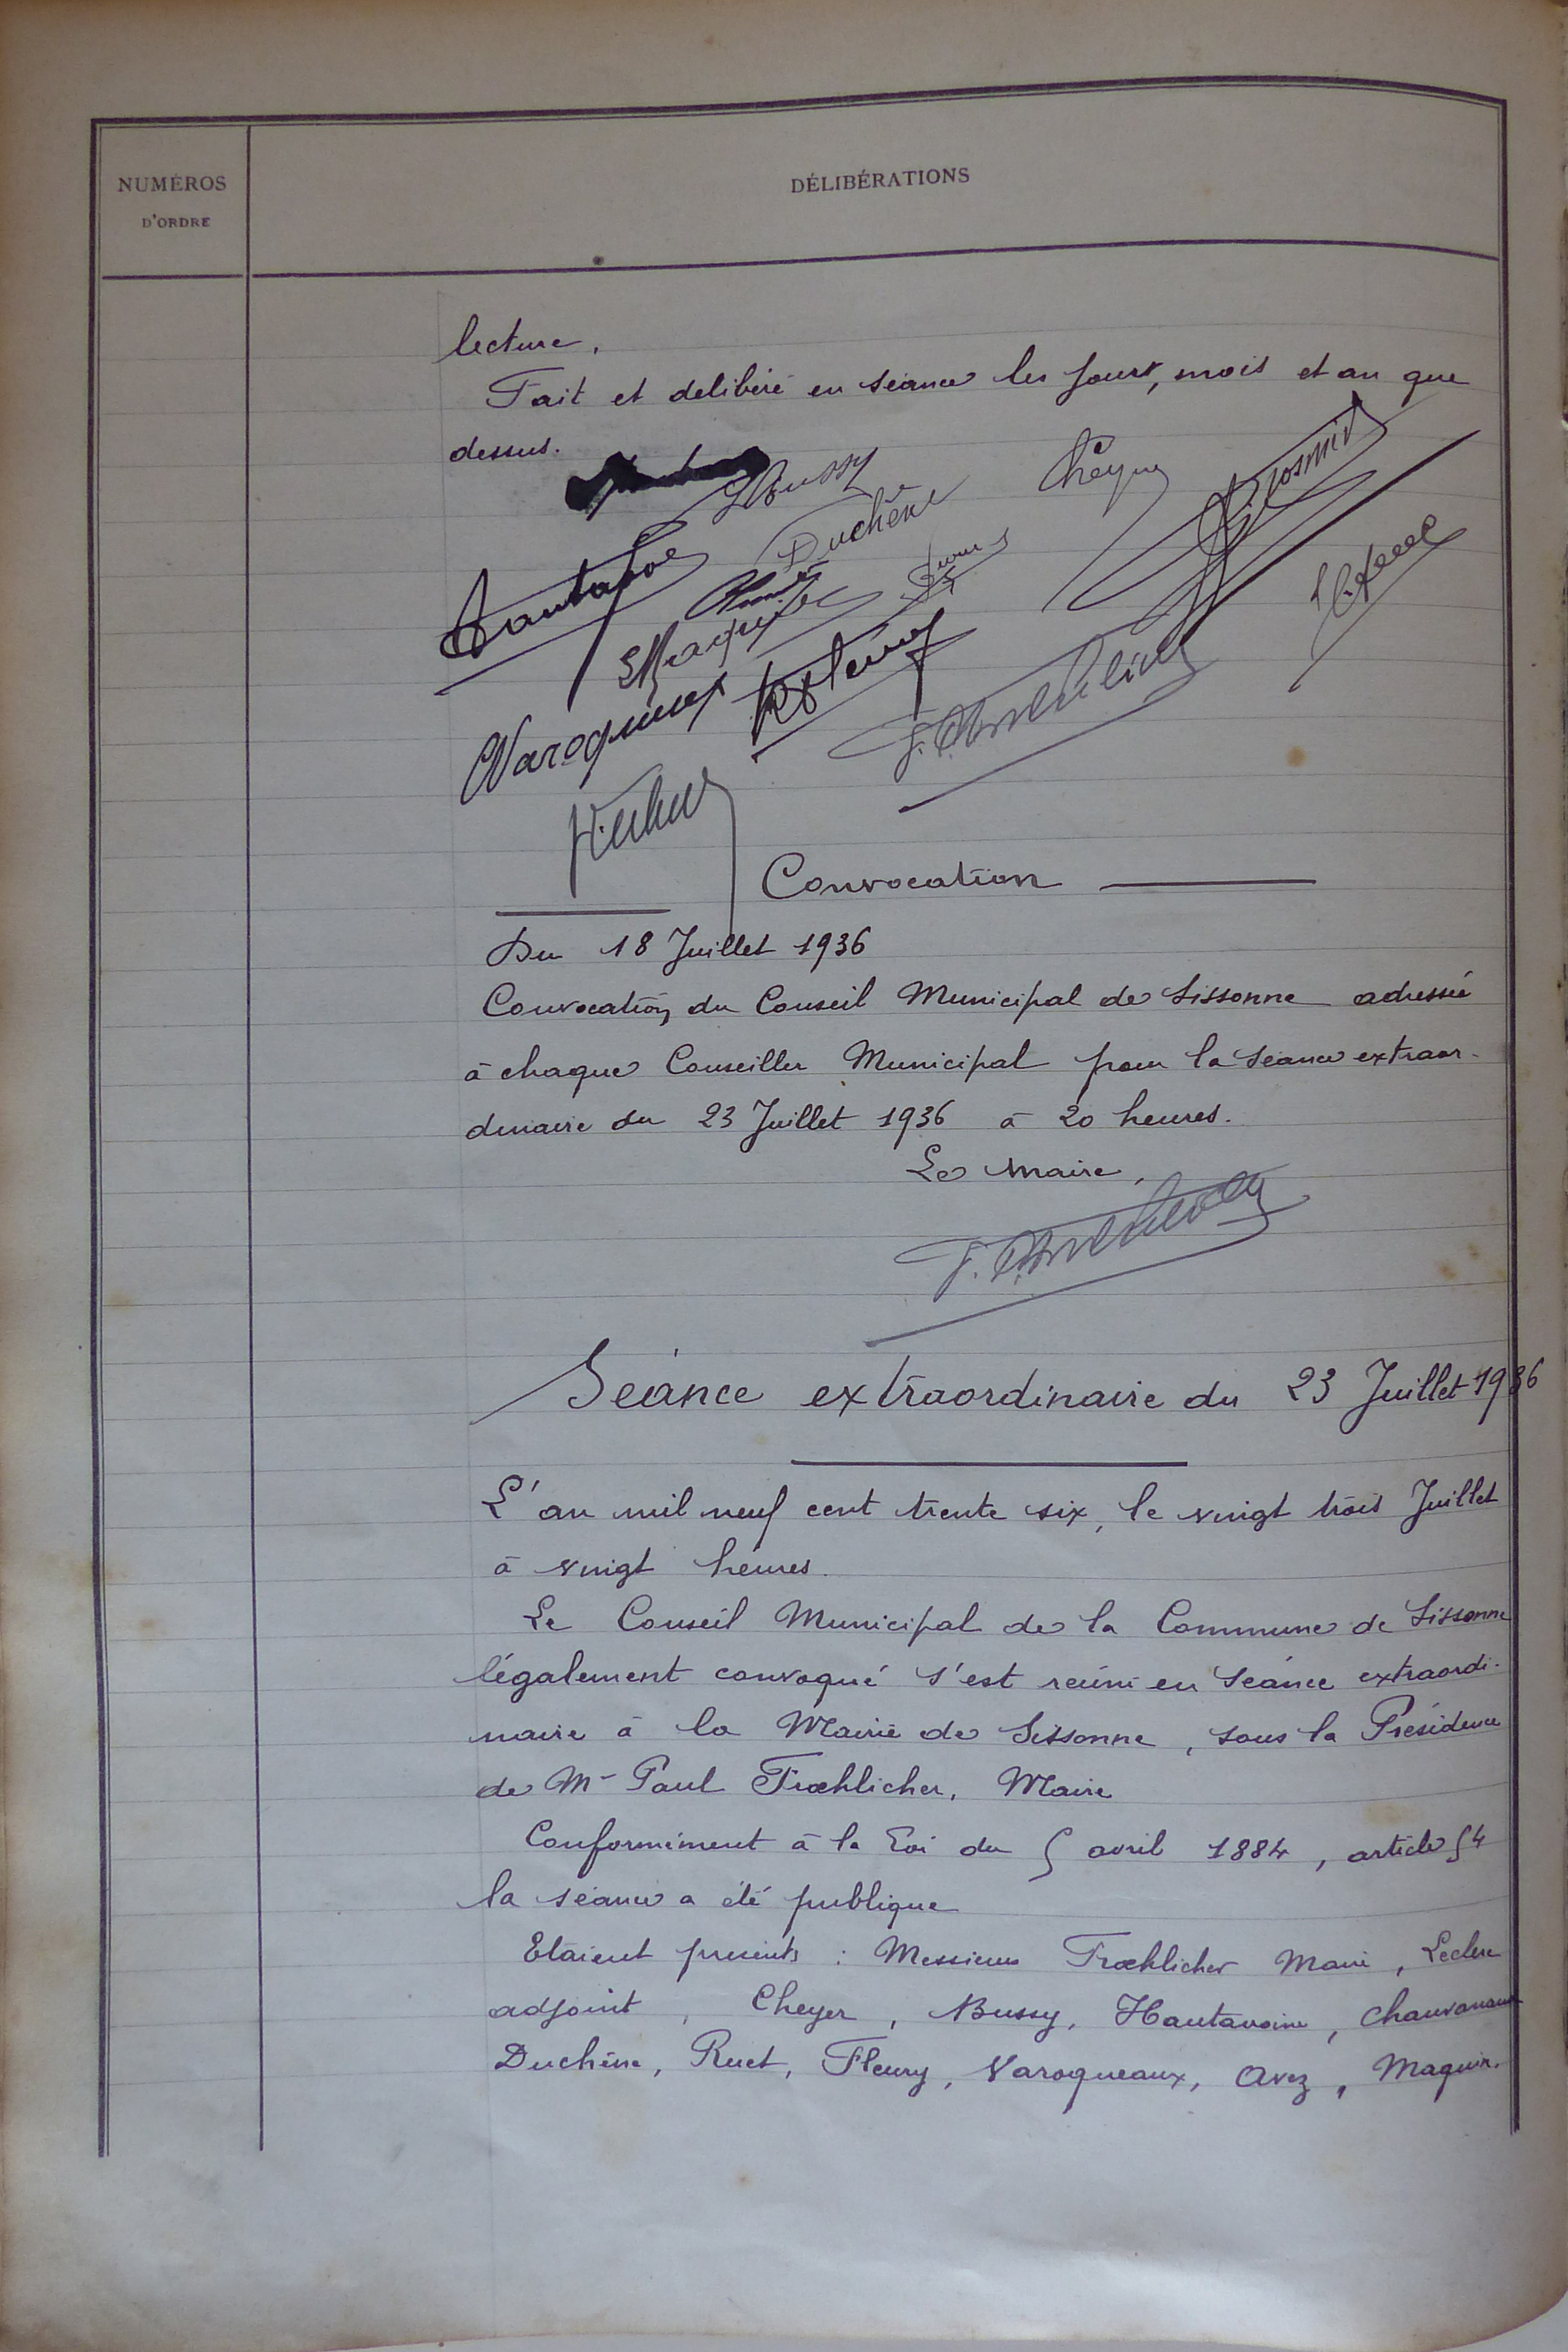 NUMÉROS
D'ORDRE
DÉLIBÉRATIONS
lecture.
Fait et délibéré en séance les jour, mois et an que
dessus.
Bussy
Duchêne
Varoqueaux
Convocation
Du 18 Juillet 1936
Convocation du Conseil Municipal de Sissonne adressée
à chaque Conseiller Municipal pour la séance extraor-
dinaire du 23 Juillet 1936 à 20 heures.
Le Maire,
Séance extraordinaire du 23 Juillet 1936
L'an mil neuf cent trente six, le vingt trois Juillet
à vingt heures.
Le Conseil Municipal de la Commune de Sissonne
légalement convoqué s'est réuni en séance extraordi-
naire à la Mairie de Sissonne, sous la Présidence
de Mr Paul Frœhlicher, Maire
Conformément à la Loi du 5 avril 1884, article 54
la séance a été publique
Etaient présents : Messieurs Frœhlicher Maire, Leclerc
adjoint, Cheyer, Bussy, Hautavoine, Chauvanaux
Duchêne, Ruet, Fleury, Varoqueaux, Avez, Maquin.